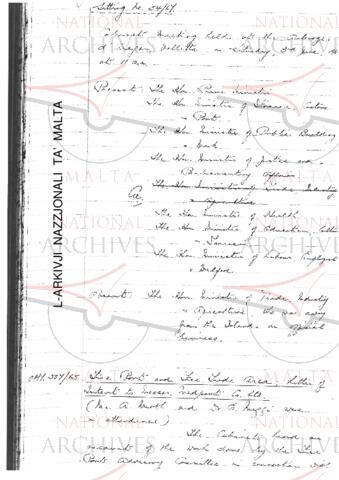 Sitting No. 54/67.
Cabinet Meeting held at the Auberge
d'Aragon Valletta, on Saturday, 3rd June,
at 11 a.m.
Present: The Hon. Prime Minister
The Hon. Minister of Finance, Customs
& Port
The Hon. Minister of Public Building
& Works
The Hon. Minister of Justice and
Parliamentary Affairs
The Hon. Minister of Trade, Industry
& Agriculture
The Hon. Minister of Health
The Hon. Minister of Education, Culture
& Tourism
The Hon. Minister of Labour, Employment
& Welfare
Absent: The Hon. Minister of Trade, Industry
& Agriculture who was away
from the Island on official
business.
Free Port and Free Trade Area: Letter of
Intent to Co. Ltd.
(Mr. A and Dr. were
in attendance)
The Cabinet heard an
account of the work done by the Free
Port Advisory Committee in connection with
L-ARKIVJI NAZZJONALI TA' MALTA
NATIONAL
ARCHIVES
MALTA